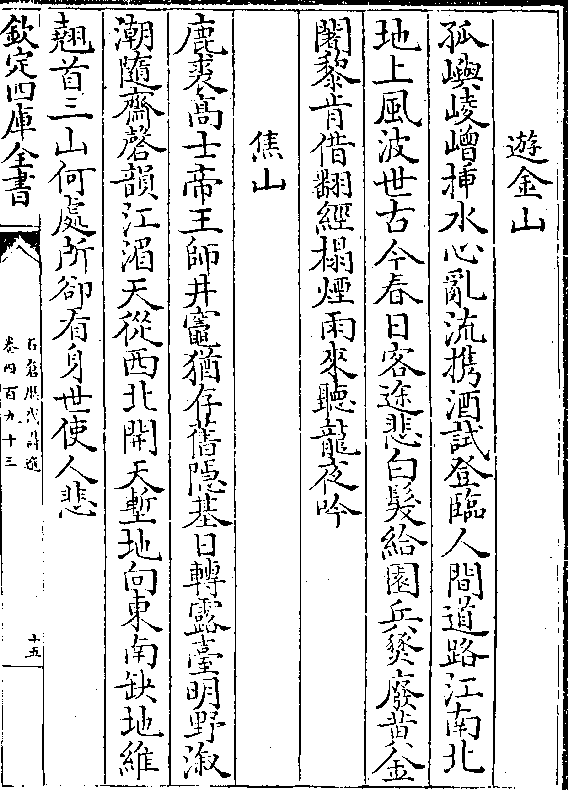 遊金山
孤嶼崚嶒揷水心亂流攜酒試登臨人間道路江南北
地上風波世古今春日客途悲白髮給園兵燹廢黄金
闍黎肯借翻經榻煙雨來聽龍夜吟
焦山
鹿裘髙士帝王師井竈猶存舊隠基日轉露臺明野溆
潮隨齋磬韻江湄天從西北開天塹地向東南缺地維
翹首三山何處所卻有身世使人悲
欽定四庫全書
石倉歴代詩選
卷四百九十三
十五